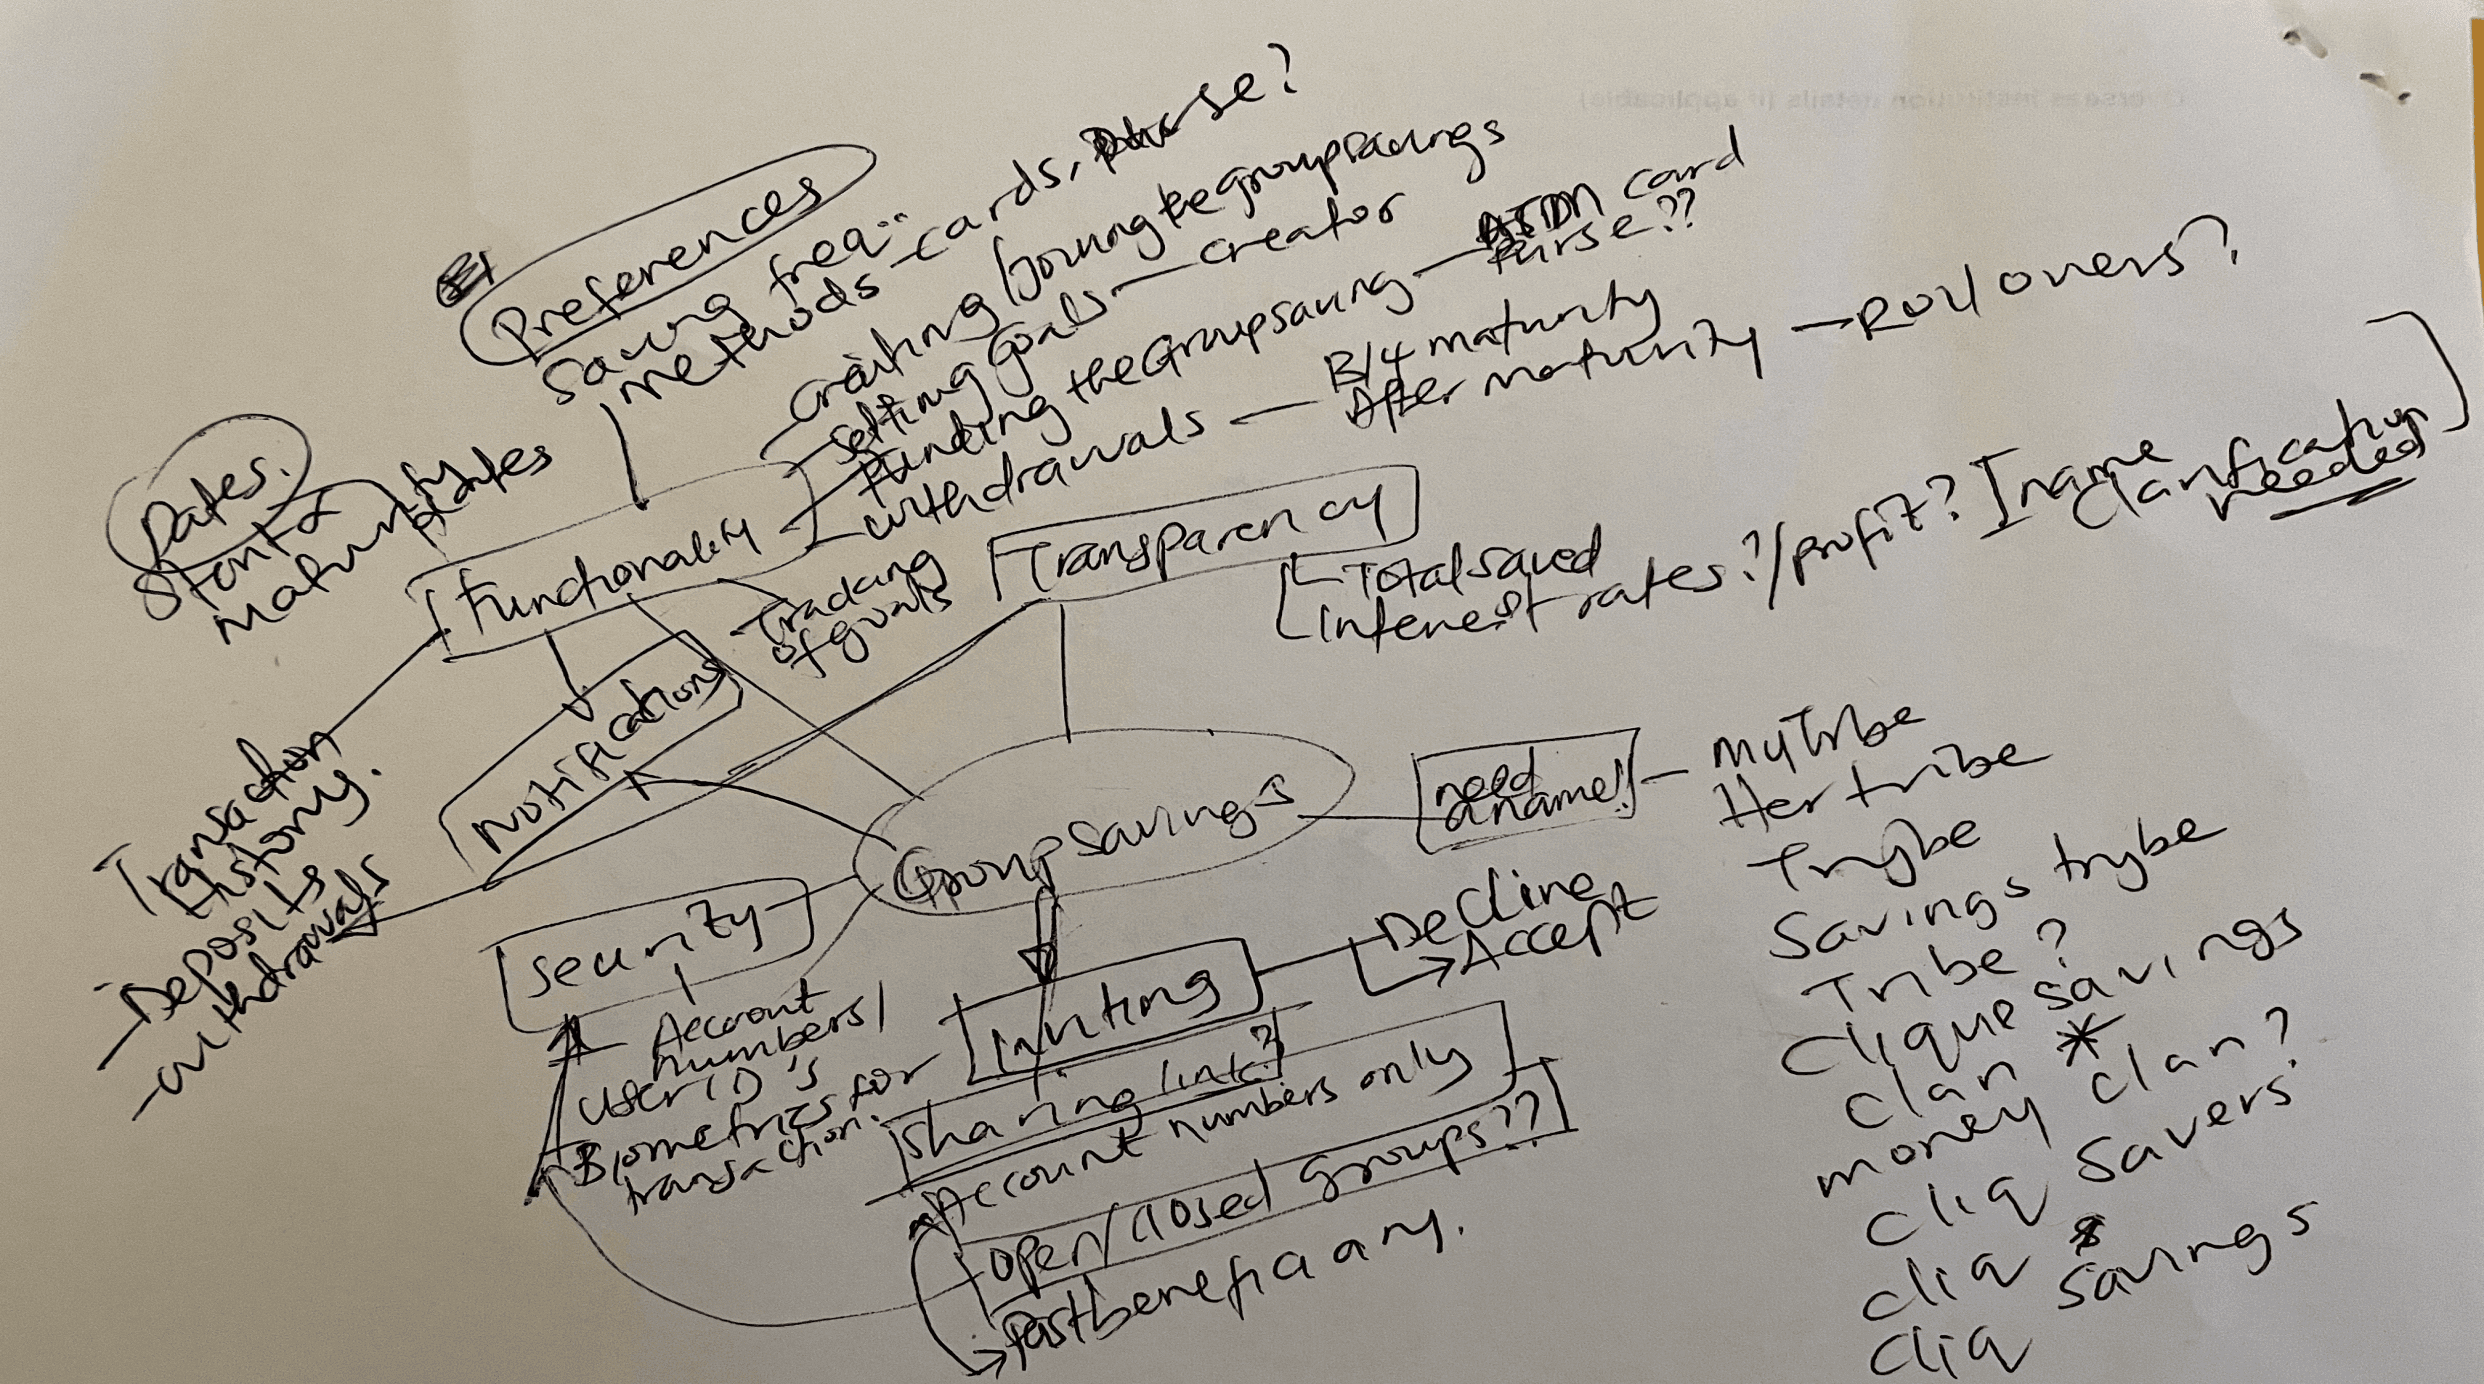 Preferences
Saving freq..
methods - cards, purse?
Dates.
Start &
maturity
dates
creating / joining the group savings
setting goals - creator
Funding the Group saving - ATM card
Purse??
withdrawals - B/4 maturity
After maturity - Roll overs?
Functionality
Tracking
of goals
Transparency
Total saved
interest rates?/profit? [name
clarification
needed]
Notifications
Transaction
history.
- Deposits
- withdrawals
Group savings
need
a name!!
- MyTribe
Her tribe
Trybe
Savings trybe
Tribe?
Clique savings
clan *
money clan?
cliq savers
cliq
savings
cliq
Security
Account
numbers/
user ID's
Biometrics for
transaction.
Inviting
Decline
Accept
sharing link?
Account numbers only
open/closed groups??
Past beneficiaary.